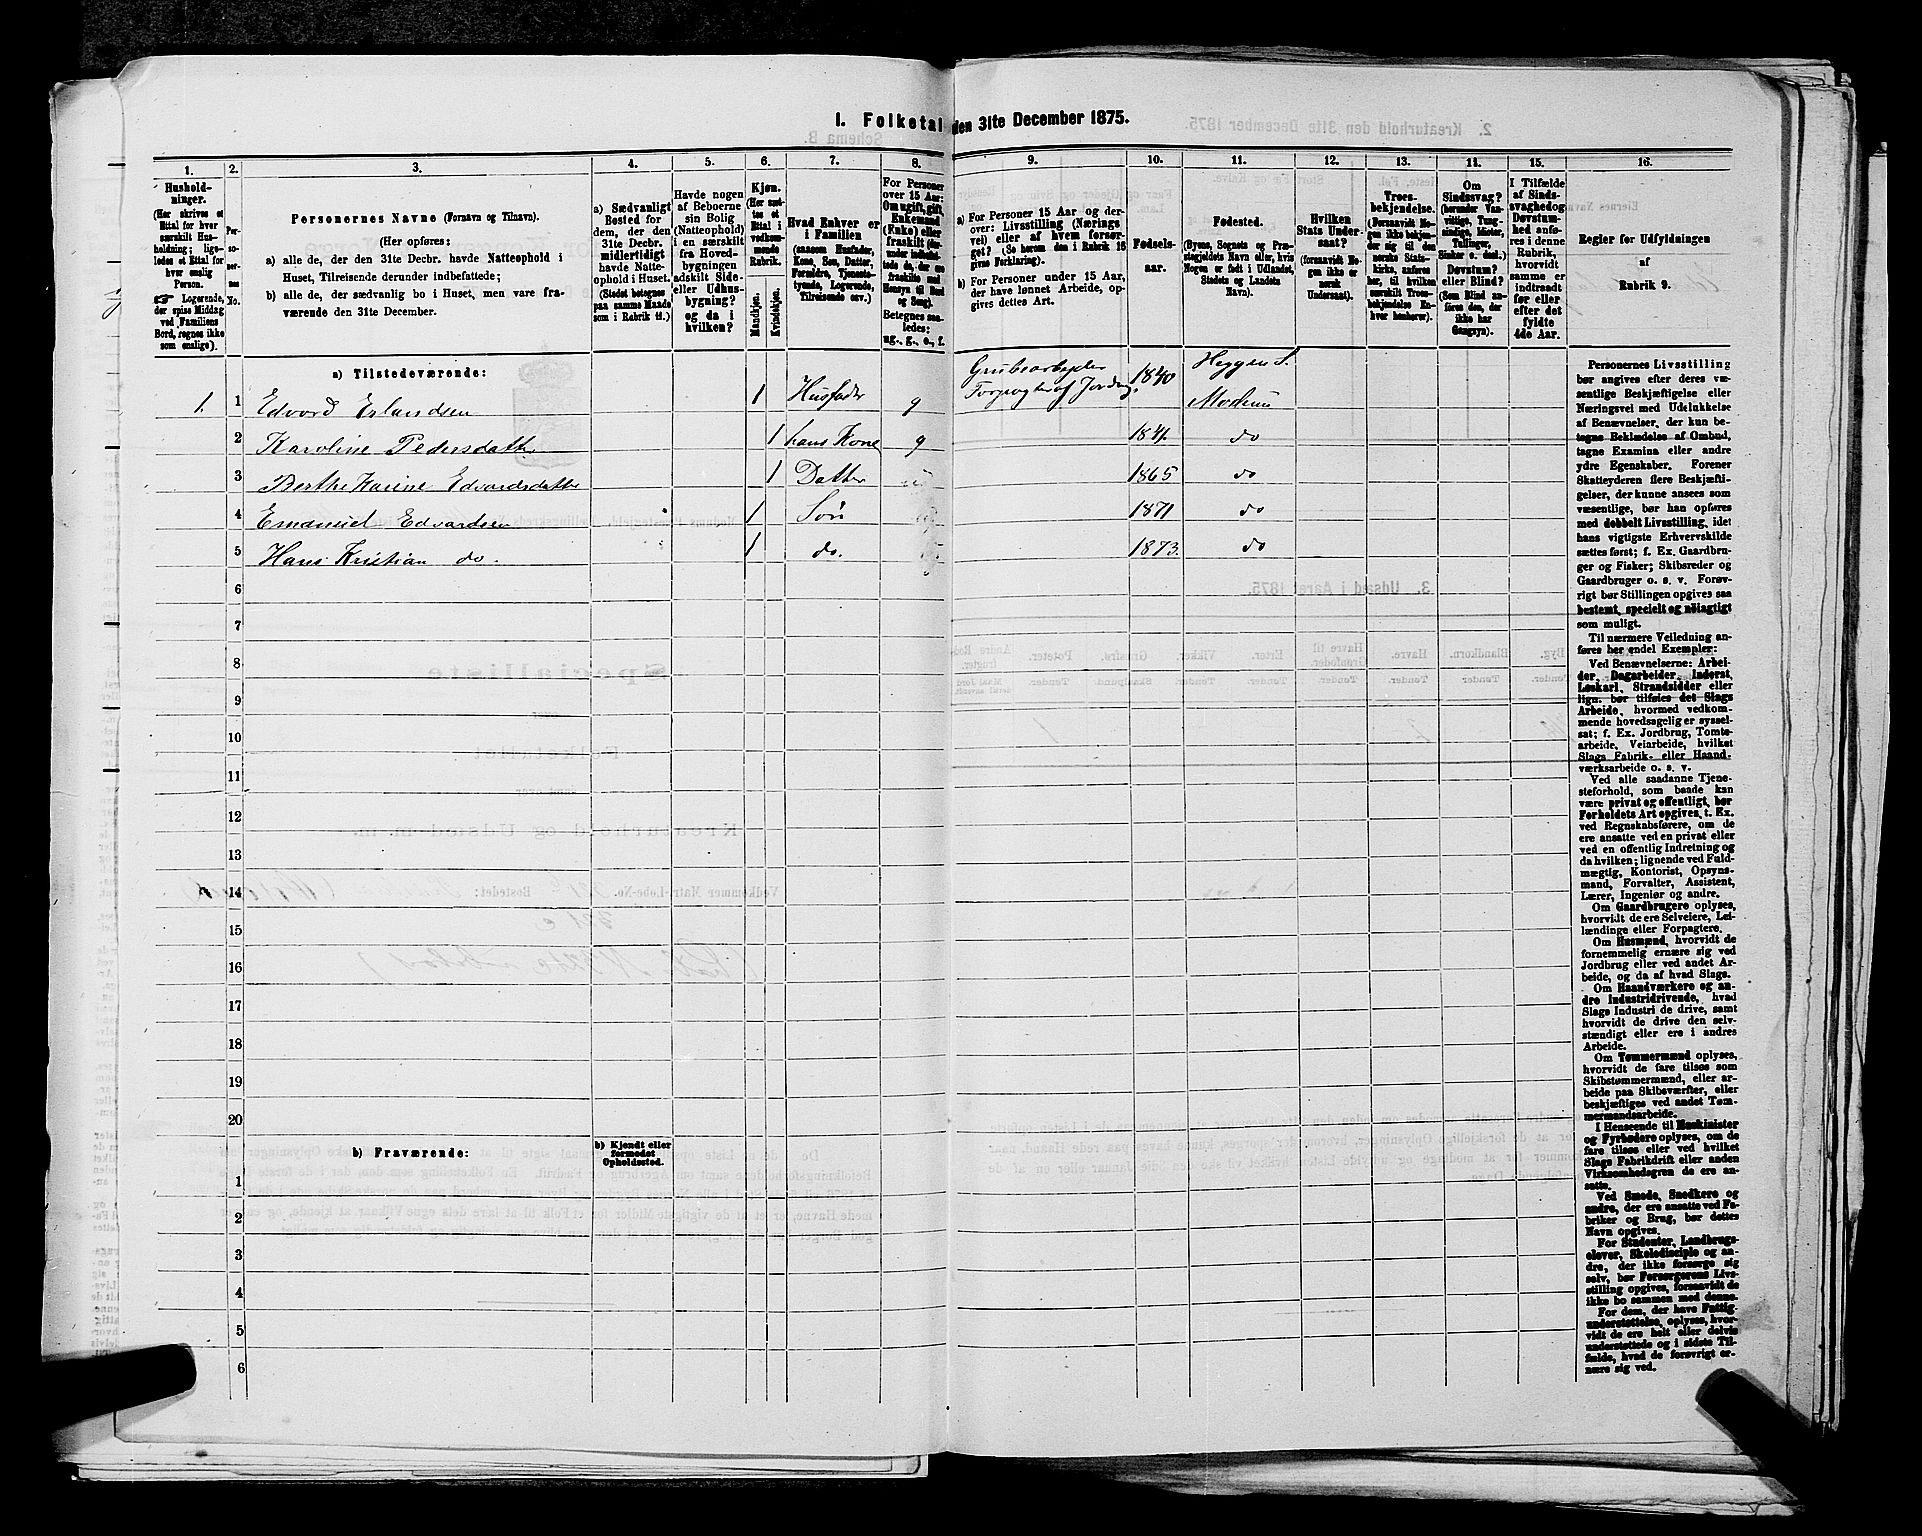 I. Folketal den 31te December 1875.
1. 2. 3. 4. 5. 6. 7. 8. 9. 10. 11. 12. 13. 14. 15. 16.
Hushold-
ninger.
(Her skrives et
Ettal for hver
særskilt Hus-
holdning; lige-
ledes et Ettal for
hver enslig
Person.
☞ Logerende,
der spise Middag
ved Familiens
Bord, regnes ikke
som enslige).
Per-
so-
ner-
nes
No.
Personernes Navne (Fornavn og Tilnavn).
(Her opføres:
a) alle de, der den 31te Decbr. havde Natteophold i
Huset, Tilreisende derunder indbefattede;
b) alle de, der sædvanlig bo i Huset, men vare fra-
værende den 31te December.
a) Sædvanligt
Bosted for
dem, der den
31te Decbr.
midlertidigt
havde Natte-
ophold i Huset.
(Stedet betegnes
paa samme Maade
som i Rubrik 11.)
Havde nogen
af Beboerne
sin Bolig
(Natteophold)
i en særskilt
fra Hoved-
bygningen
adskilt Side-
eller Udhus-
bygning?
og da i
hvilken?
Kjøn.
(Her sæt-
tes et
Ettal i
vedkom-
mende
Rubrik.
Mandkjøn.
Kvindekjøn.
Hvad Enhver er
i Familien
(saasom Husfader,
Kone, Søn, Datter,
Forældre, Tjeneste-
tyende, Logerende,
Tilreisende osv.)
For Personer
over 15 Aar:
Om ugift, gift,
Enkemand
(Enke) eller
fraskilt (der-
under indbefat-
tede de, der ere
fraskilte med
Hensyn til Bord
og Seng).
Betegnes saa-
ledes:
ug., g., e., f.
a) For Personer 15 Aar og der-
over: Livsstilling (Nærings-
vei) eller af hvem forsør-
get? (Se herom den i Rubrik 16
givne Forklaring).
b) For Personer under 15 Aar,
der have lønnet Arbeide, op-
gives dettes Art.
Fødsels-
aar.
Fødested.
(Byens, Sognets og Præ-
stegjeldets Navn eller, hvis
Nogen er født i Udlandet,
Stedets og Landets
Navn).
Hvilken
Stats Under-
saat?
(forsaavidt No-
gen ikke er
norsk
Undersaat).
Troes-
bekjendelse.
(Forsaavidt No-
gen ikke bekjen-
der sig til den
norske Stats-
kirke, anføres
her, til hvilken
særskilt Troes-
bekjendelse En-
hver henhører).
Om
Sindssvag?
(herunder Van-
vittige, Tung-
sindige, Idioter,
Tullinger,
Sinker o. desl.)
Døvstum?
eller Blind?
(Som Blind an-
føres den, der
ikke har
Gangsyn).
I Tilfælde
af Sinds-
svaghed og
Døvstum-
hed anfø-
res i denne
Rubrik,
hvorvidt
samme er
indtraadt
før eller
efter det
fyldte
4de Aar.
Regler for Udfyldningen
af
Rubrik 9.
a) Tilstedeværende:
1. 1 Edvard Erlandsen 1 Husfader g Grubearbejder Forpagter af Jordvej. 1840 Heggen S. Modum
2 Karoline Pedersdatter 1 hans Kone g 1841 do
3 Berthe Karine Edvardsdatter 1 Datter 1865 do
4 Emanuel Edvardsen 1 Søn 1871 do
5 Hans Kristian do. 1 do. 1873. do
6
7
8
9
10
11
12
13
14
15
16
17
18
19
20
b) Fraværende:
b) Kjendt eller
formodet
Opholdssted.
1
2
3
4
5
6
Personernes Livsstilling
bør angives efter deres væ-
sentlige Beskjæftigelse eller
Næringsvei med Udelukkelse
af Benævnelser, der kun be-
tegne Beklædelse af Ombud,
tagne Examina eller andre
ydre Egenskaber. Forener
Skatteyderen flere Beskjæfti-
gelser, der kunne ansees som
væsentlige, bør han opføres
med dobbelt Livsstilling, idet
hans vigtigste Erhvervskilde
sættes først; f. Ex. Gaardbru-
ger og Fisker; Skibsreder og
Gaardbruger o. s. v. Forøv-
rigt bør Stillingen opgives saa
bestemt, specielt og nøiagtigt
som muligt.
Til nærmere Veiledning an-
føres her endel Exempler:
Ved Benævnelserne: Arbei-
der, Dagarbeider, Inderst,
Løskarl, Strandsidder eller
lign. bør tilføies det Slags
Arbeide, hvormed vedkom-
mende hovedsagelig er syssel-
sat; f. Ex. Jordbrug, Tomte-
arbeide, Veiarbeide, hvilket
Slags Fabrik- eller Haand-
værksarbeide o. s. v.
Ved alle saadanne Tjene-
steforhold, som baade kan
være privat og offentligt, bør
Forholdets Art opgives, t. Ex.
ved Regnskabsførere, om de
ere ansatte ved en privat eller
ved en offentlig Indretning og
da hvilken; lignende ved Fuld-
mægtig, Kontorist, Opsyns-
mand, Forvalter, Assistent,
Lærer, Ingeniør og andre.
Om Gaardbrugere oplyses,
hvorvidt de ere Selveiere, Lei-
lændinge eller Forpagtere.
Om Husmænd, hvorvidt de
fornemmelig ernære sig ved
Jordbrug eller ved andet Ar-
beide, og da af hvad Slags.
Om Haandværkere og an-
dre Industridrivende, hvad
Slags Industri de drive, samt
hvorvidt de drive den selv-
stændigt eller ere i andres
Arbeide.
Om Tømmermænd oplyses,
hvorvidt de fare tilsøs som
Skibstømmermænd, eller ar-
beide paa Skibsværfter, eller
beskjæftiges ved andet Tøm-
mermandsarbeide.
I Henseende til Maskinister
og Fyrbødere oplyses, om de
fare tilsøs eller ved hvilket
Slags Fabrikdrift eller anden
Virksomhedsgren de ere an-
satte.
Ved Smede, Snedkere og
andre, der ere ansatte ved Fa-
briker og Brug, bør dettes
Navn opgives.
For Studenter, Landbrugs-
elever, Skoledisciple og an-
dre, der ikke forsørge sig
selv, bør Forsørgerens Livs-
stilling opgives, forsaavidt de
ikke bo sammen med denne.
For dem, der have Fattig-
understøttelse, oplyses, hvor-
vidt de ere helt eller delvis
understøttede og i sidste Til-
fælde, hvad de forøvrigt er-
nære sig ved.